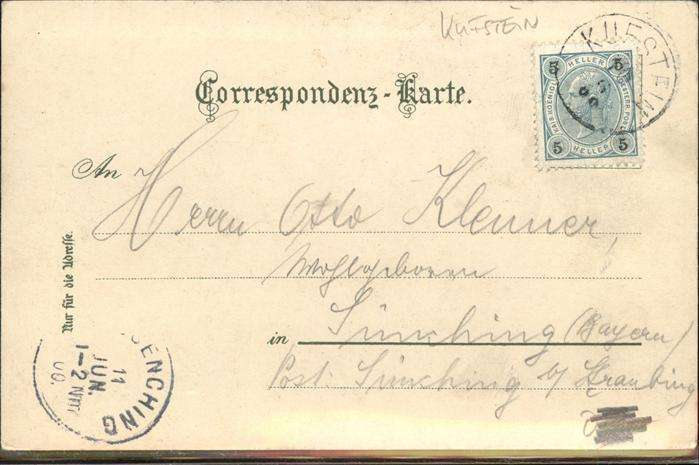 KUFSTEIN
KUFSTEIN
5 HELLER 5
5 HELLER 5
Correspondenz-Karte.
An
Herrn Otto Klenner,
Wohlgeboren
in Sünching (Bayern)
Post Sünching b/ Straubing
Nur für die Adresse.
ENCHING
11
JUN.
1-2 Nm
00.